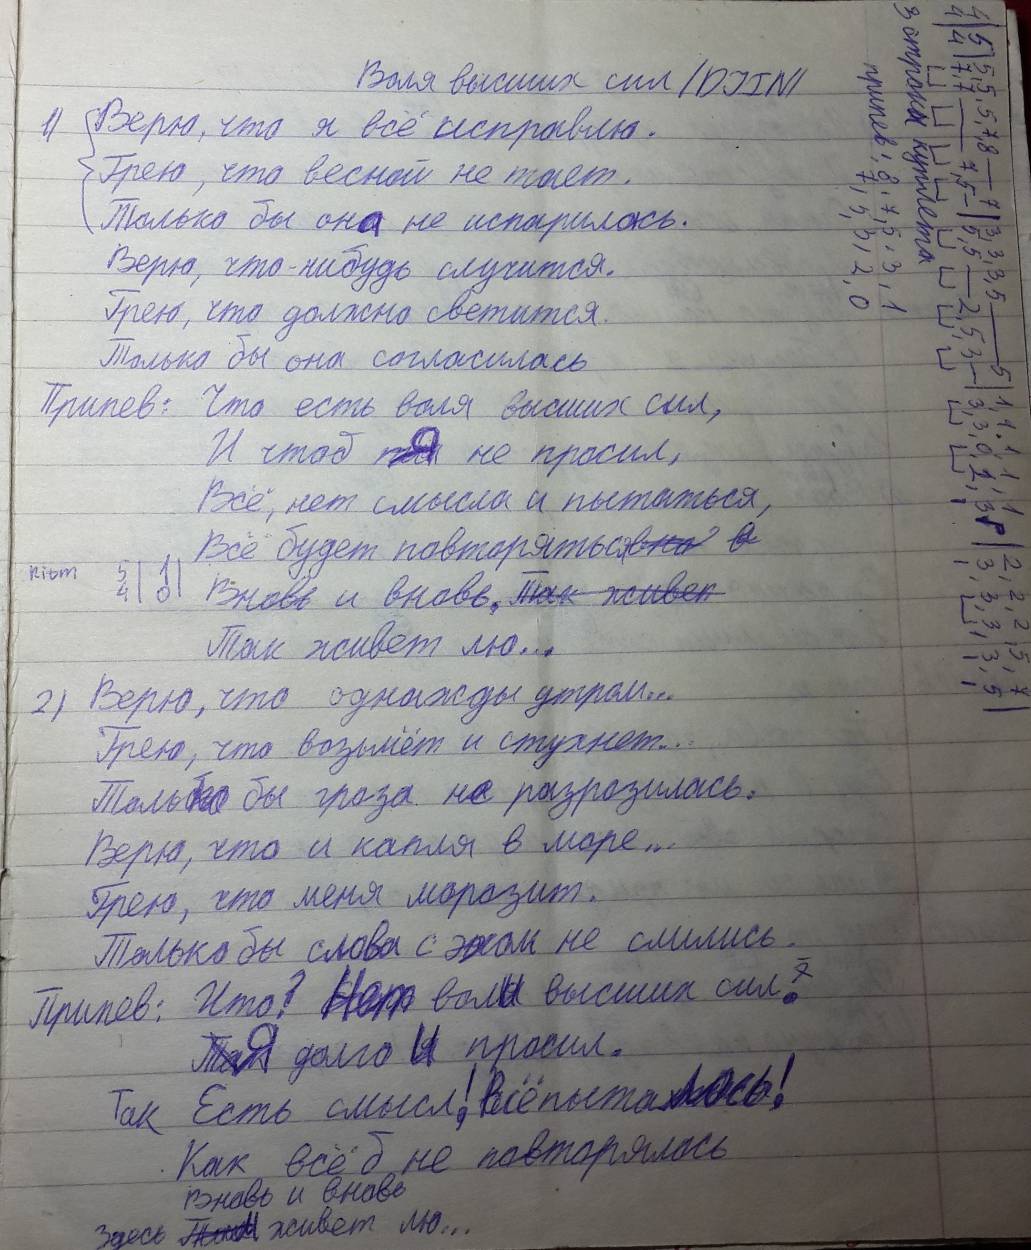 Воля высших сил /DJIN/
1) Верю, что я всё исправлю.
Грею, что весной не тает.
Только бы она не испарилась.
Верю, что-нибудь случится.
Грею, что должно светится.
Только бы она согласилась
Припев: Что есть воля высших сил,
И чтоб Я не просил,
Всё, нет смысла и пытаться,
Всё будет повторяться
Вновь и вновь. Так живет
Так живет лю...
2) Верю, что однажды утром...
Грею, что возьмёт и стухнет...
Только бы гроза не разразилась.
Верю, что и капля в море...
Грею, что меня морозит.
Только бы слова с эхом не слились.
Припев: Что? Нет воли высших сил.
Я долго И просил.
Так Есть смысл! Всё пыталось!
Как всё б не повторялось
Вновь и вновь
Здесь живет лю...
3 строки куплета
припев: 8, 7, 5, 3, 1
7, 5, 3, 2, 0